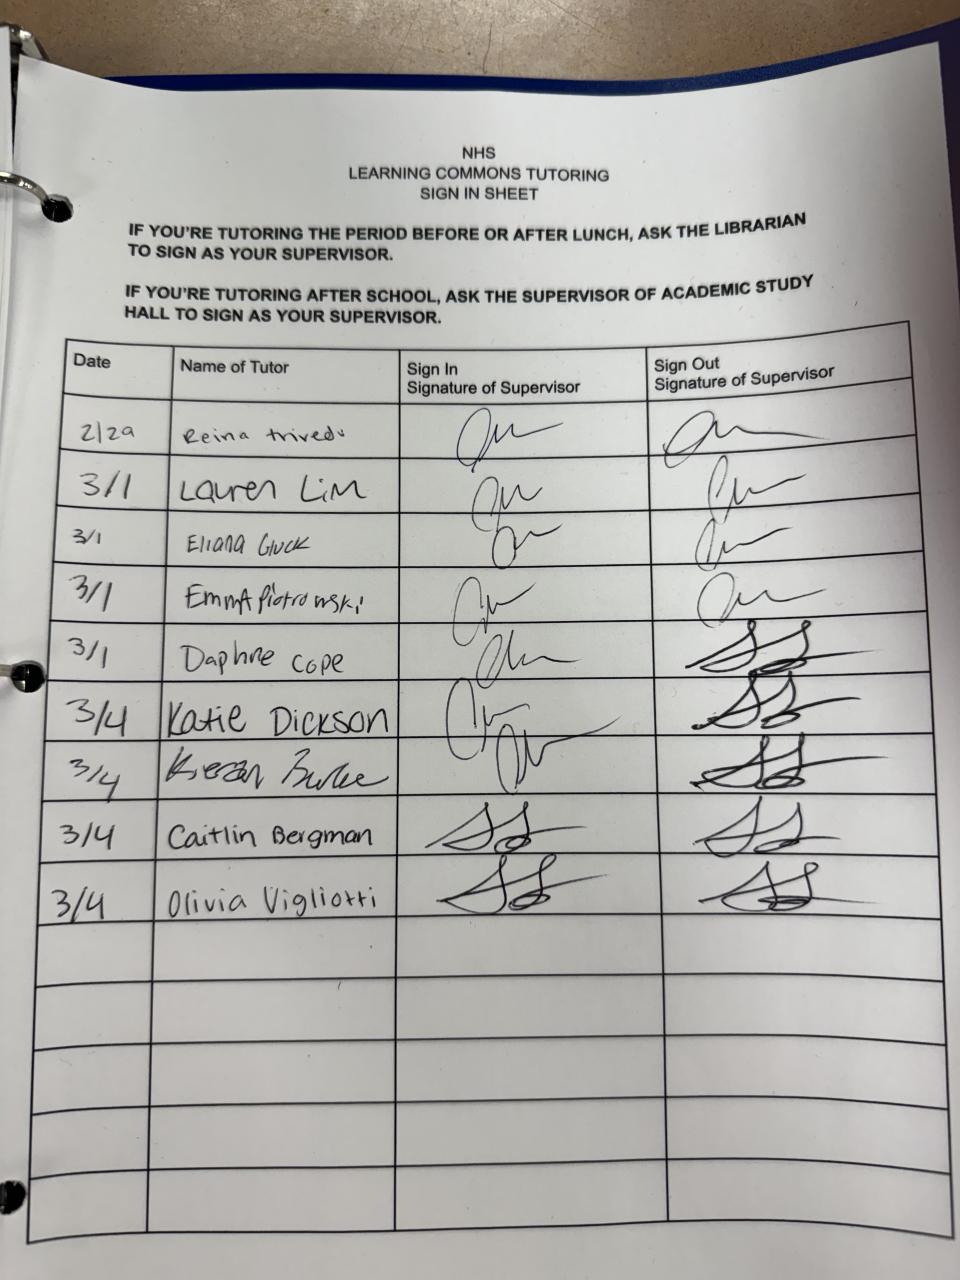 NHS
LEARNING COMMONS TUTORING
SIGN IN SHEET
IF YOU'RE TUTORING THE PERIOD BEFORE OR AFTER LUNCH, ASK THE LIBRARIAN
TO SIGN AS YOUR SUPERVISOR.
IF YOU'RE TUTORING AFTER SCHOOL, ASK THE SUPERVISOR OF ACADEMIC STUDY
HALL TO SIGN AS YOUR SUPERVISOR.
Date Name of Tutor Sign In Sign Out
Signature of Supervisor Signature of Supervisor
2/29 Reina trivedi
3/1 Lauren Lim
3/1 Eliana Gluck
3/1 Emma Piotrowski
3/1 Daphne Cope
3/4 Katie Dickson
3/4 Kieran Burke
3/4 Caitlin Bergman
3/4 Olivia Vigliotti